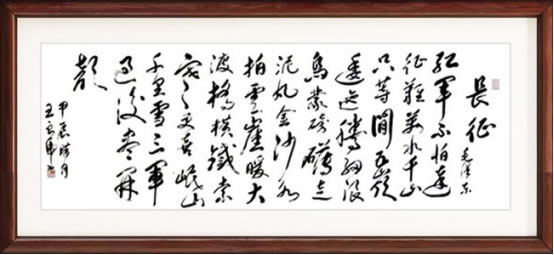 長征
毛泽东
红軍不怕遠
征難萬水千山
只等閒五嶺
逶迤騰細浪
烏蒙磅礴走
泥丸金沙水
拍雲崖暖大
渡橋橫鐵索
寒更喜岷山
千里雪三軍
過後盡開
顏
甲辰